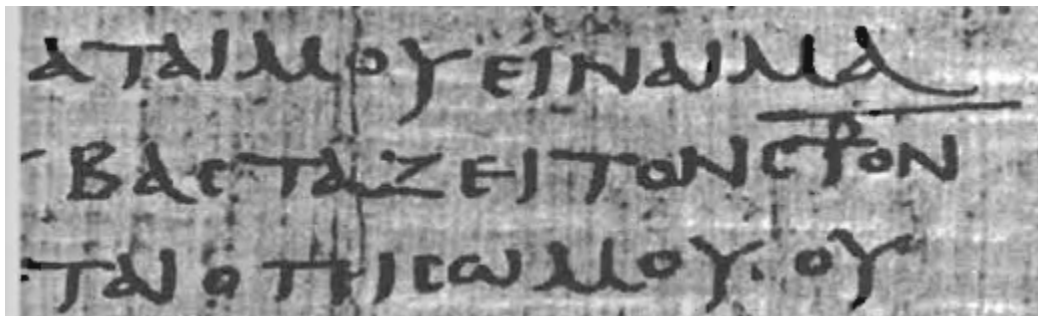 ΑΤΑΙΜΟΥΕΙΝΑΙΜΑ
ΒΑϹΤΑΖΕΙΤΟΝϹ̅⳨̅Ο̅Ν̅
ΤΑΙΟΠΙϹΩΜΟΥ·ΟΥ